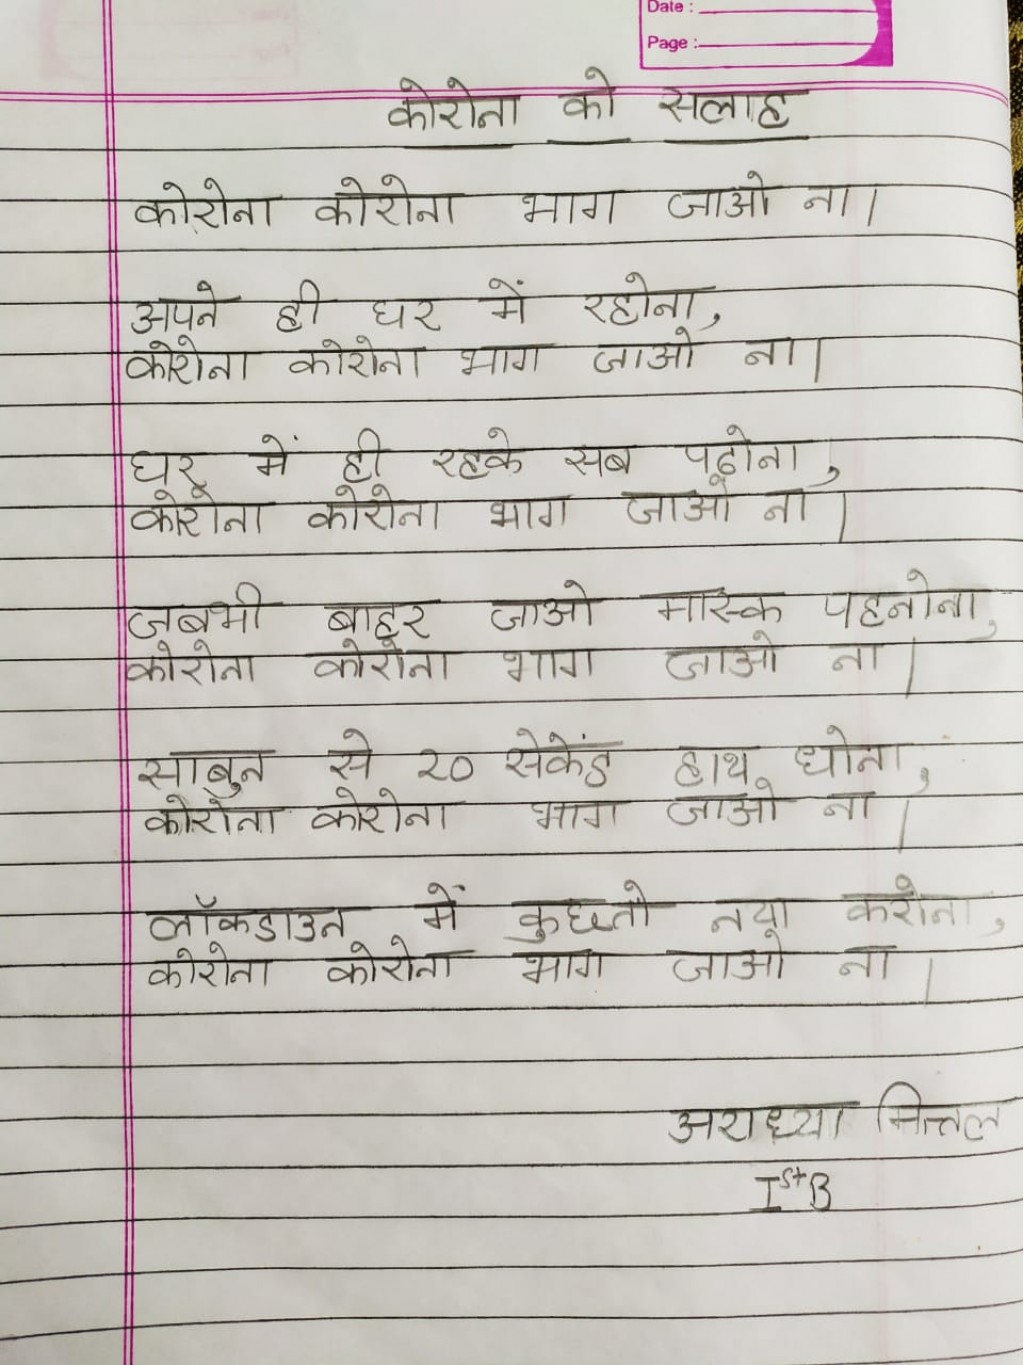 Date :
Page :
कोरोना को सलाह
कोरोना कोरोना भाग जाओ ना।
अपने ही घर में रहोना,
कोरोना कोरोना भाग जाओ ना।
घर में ही रहके सब पढ़ोना,
कोरोना कोरोना भाग जाओ ना।
जबभी बाहर जाओ मास्क पहनोना,
कोरोना कोरोना भाग जाओ ना।
साबुन से २० सेकेंड हाथ धोना,
कोरोना कोरोना भाग जाओ ना।
लॉकडाउन में कुछतो नया करोना,
कोरोना कोरोना भाग जाओ ना।
अराध्या मित्तल
Ist B